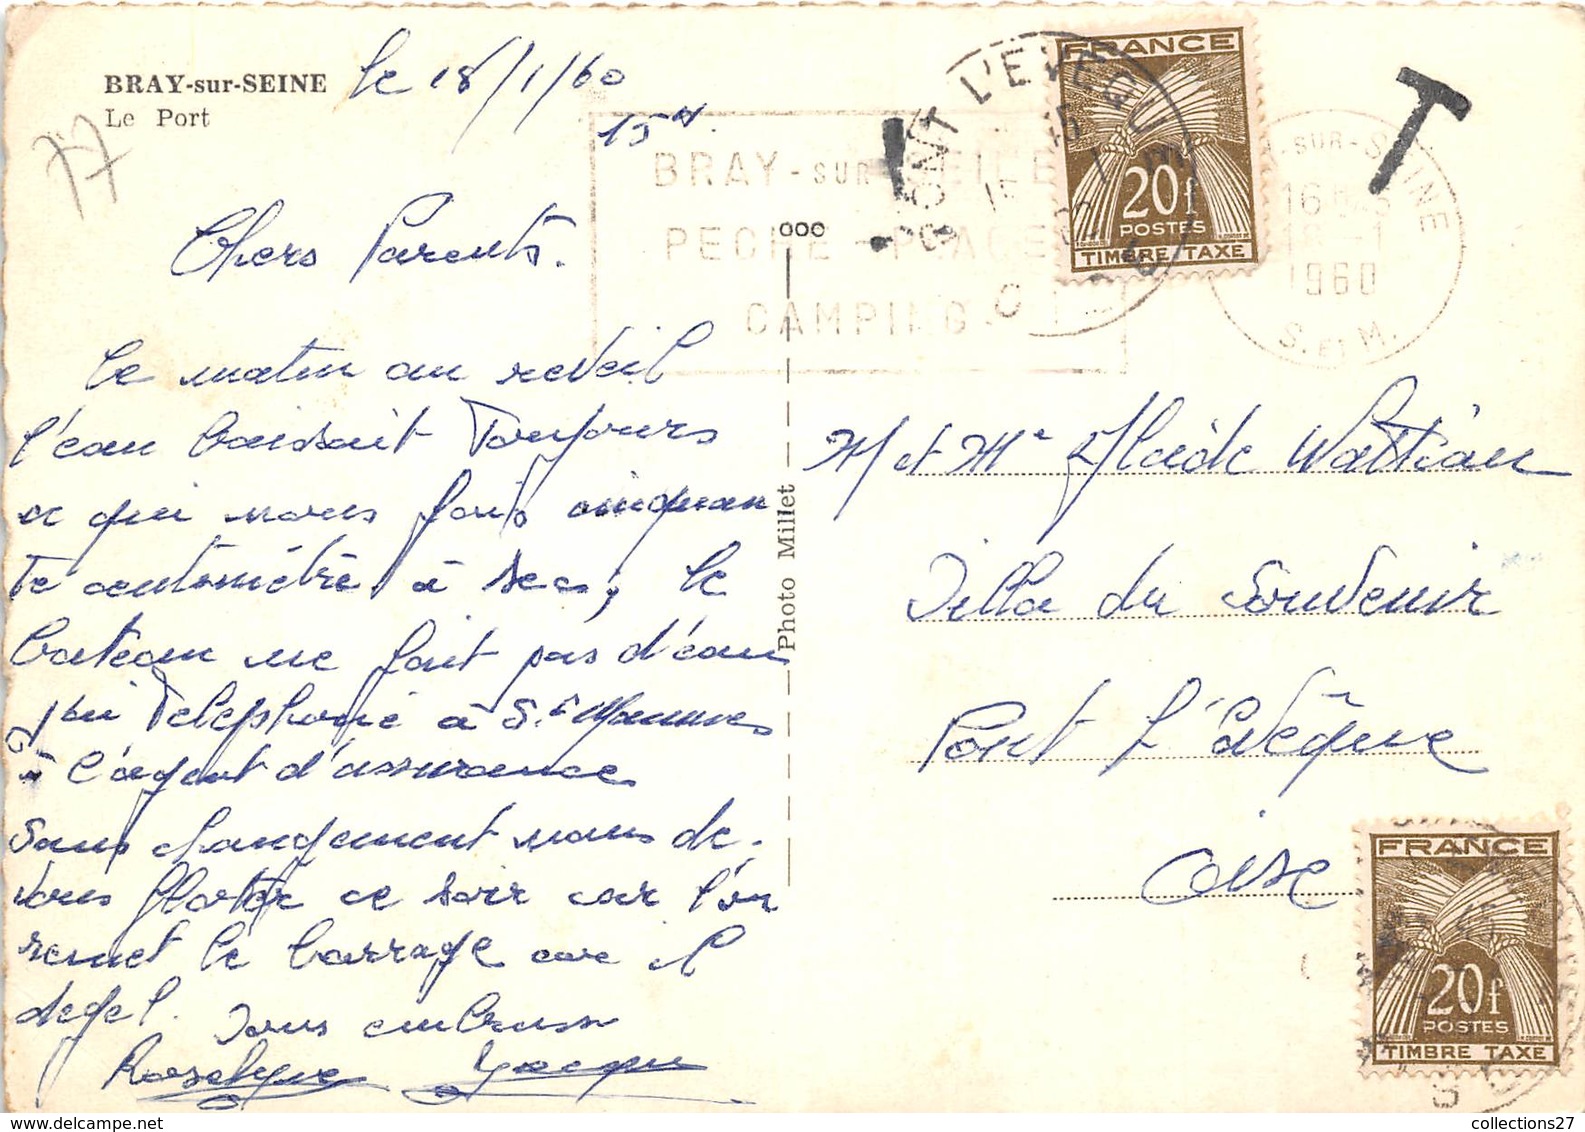 BRAY-sur-SEINE
Le Port
le 18/1/60
15 H
77
Chers Parents.
Ce matin au reveil
l'eau baissait Toujours
ce qui nous fais cinquan
te centimètre à sec, le
bateau ne fait pas d'eau
j'ai Telephoné à St Mammes
à l'agent d'assurance
Sans changement nous de-
vons flotter ce soir car l'on
remet le barrage car il
degel.
Vous embrasse
Roselyne Jacques
Photo Millet
BRAY-sur-SEINE
PECHE - PLAGE
CAMPING
PONT L'EVEQUE
T
-SUR-SEINE
16H45
18-1
1960
S. ET M.
FRANCE
20f
POSTES
TIMBRE TAXE
M et Me Wattiau
Villa du Souvenir
Pont L'Evêque
Oise
FRANCE
20f
POSTES
TIMBRE TAXE
collections27